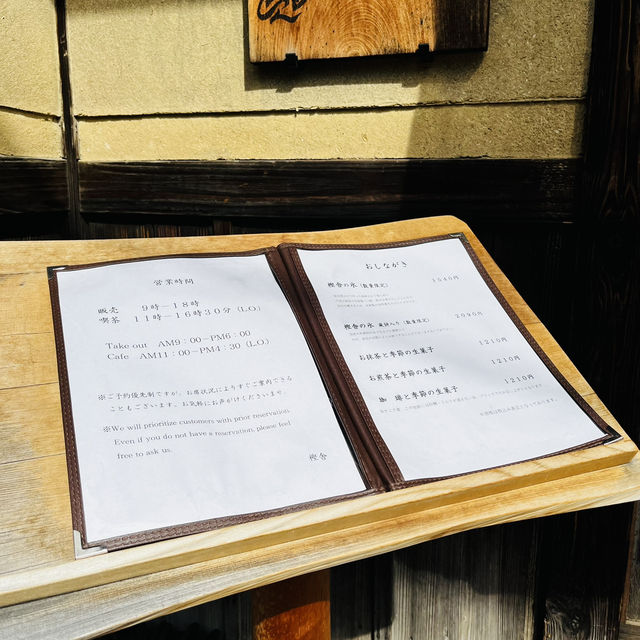 営業時間
販売 9時－18時
喫茶 11時－16時30分（L.O.）
Take out AM9：00－PM6：00
Cafe AM11：00－PM4：30（L.O.）
※ご予約優先制ですが、お席状況によりすぐご案内できる
こともございます。お気軽にお声がけくださいませ。
※We will prioritize customers with prior reservation.
Even if you do not have a reservation, please feel
free to ask us.
樫舎
おしながき
樫舎の氷（数量限定） 1540円
樫舎の氷 菓銘入り（数量限定） 2090円
お抹茶と季節の生菓子 1210円
お煎茶と季節の生菓子 1210円
珈琲と季節の生菓子 1210円